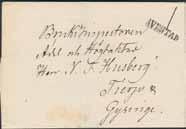 AVESTAD
Bruksinspectoren
Adl. och Högbetrodde
Herr N. F. Husberg
Tierp &
Gysinge.